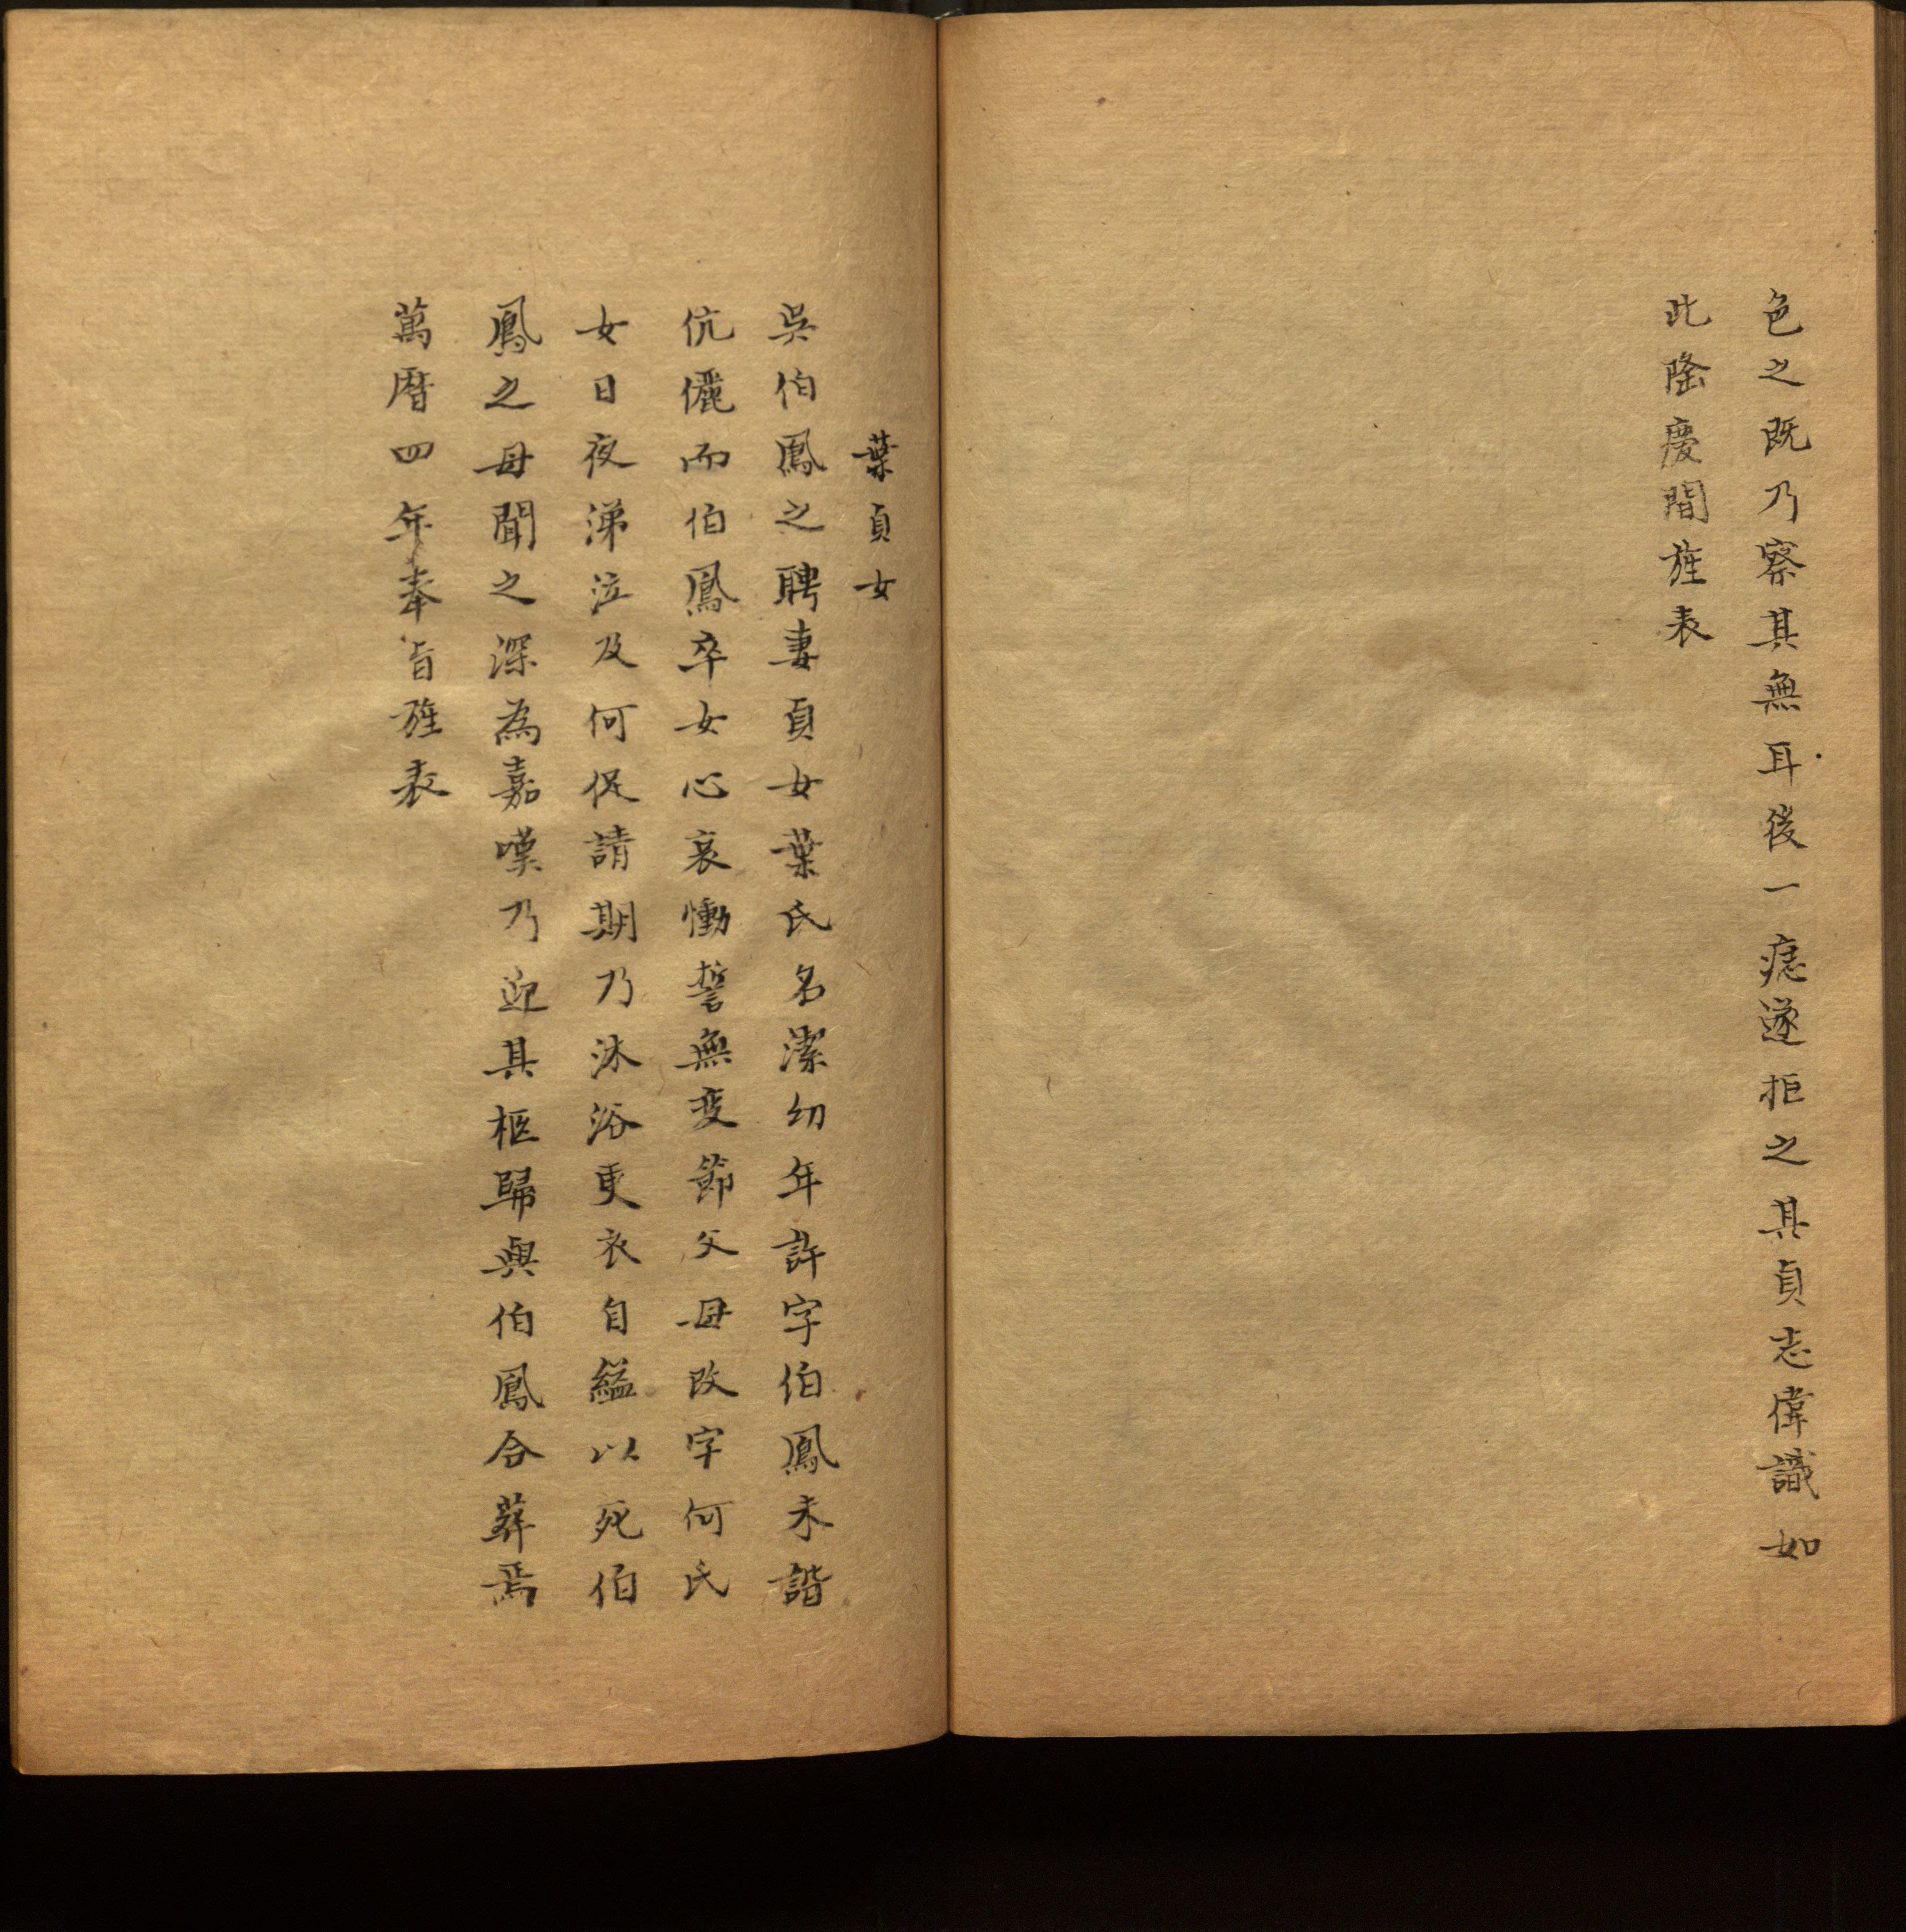 色之既乃察其無耳後一痣遂拒之其貞志偉識如
此隆慶間旌表
葉貞女
吳伯鳳之聘妻貞女葉氏名潔幼年許字伯鳳未諧
伉儷而伯鳳卒女心哀慟誓無变節父母改字何氏
女日夜涕泣及何促請期乃沐浴更衣自縊以死伯
鳳之母聞之深為嘉嘆乃迎其柩歸與伯鳳合葬焉
萬曆四年奉旨旌表